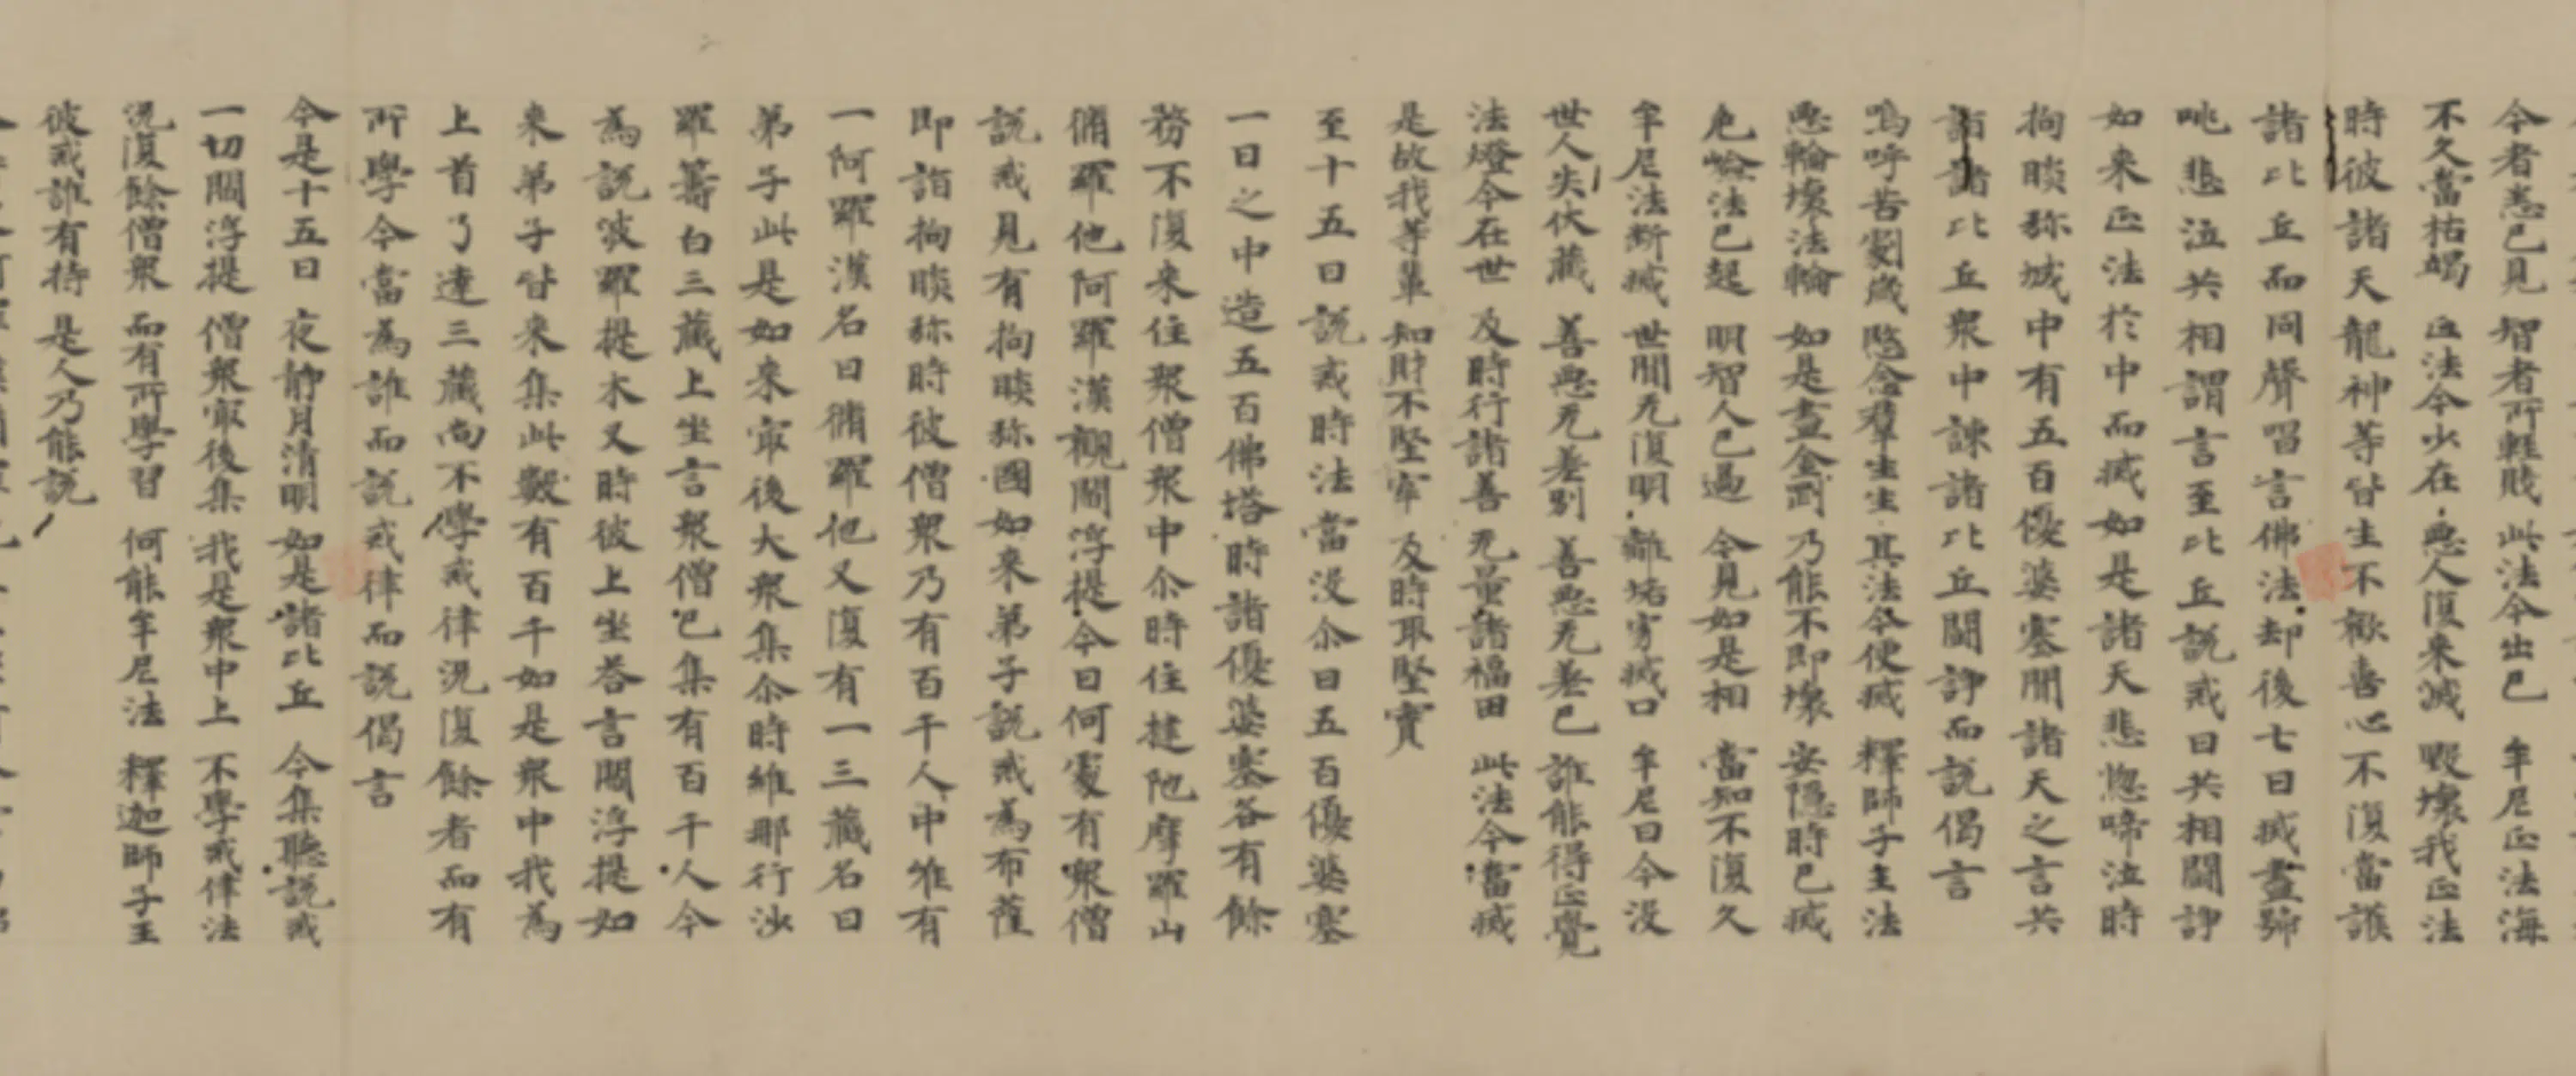 今者悉已見 智者所輕賤 此法今出已 牟尼正法海
不久當枯竭 正法今少在 惡人復來滅 毀壞我正法
時彼諸天龍神等皆生不歡喜心不復當護
諸比丘而同聲唱言佛法却後七日滅盡號
咷悲泣共相謂言至比丘說戒日共相鬪諍
如来正法於中而滅如是諸天悲惱啼泣時
拘睒弥城中有五百優婆塞聞諸天之言共
詣諸比丘衆中諫諸比丘鬪諍而說偈言
嗚呼苦劇歲 愍念羣生生 其法今便滅 釋師子主法
惡輪壞法輪 如是盡金剛 乃能不即壞 安隱時已滅
危嶮法已起 明智人已過 今見如是相 當知不復久
牟尼法斷滅 世間无復明 離垢寂滅口 牟尼日今没
世人失伏藏 善惡无差別 善惡无差已 誰能得正覺
法燈今在世 及時行諸善 无量諸福田 此法今當滅
是故我等輩 知財不堅牢 及時取堅實
至十五日說戒時法當没尒日五百優婆塞
一日之中造五百佛塔時諸優婆塞各有餘
務不復来住衆僧衆中尒時住揵陁摩羅山
脩羅他阿羅漢觀閻浮提今日何處有衆僧
說戒見有拘睒弥國如来弟子說戒為布薩
即詣拘睒弥時彼僧衆乃有百千人中唯有
一阿羅漢名曰脩羅他又復有一三藏名曰
弟子此是如来冣後大衆集尒時維那行沙
羅籌白三藏上坐言衆僧已集有百千人今
為說波羅提木叉時彼上坐荅言閻浮提如
来弟子皆来集此數有百千如是衆中我為
上首了達三藏尚不學戒律況復餘者而有
所學今當為誰而說戒律而說偈言
今是十五日 夜静月清明 如是諸比丘 今集聽說戒
一切閻浮提 僧衆冣後集 我是衆中上 不學戒律法
況復餘僧衆 而有所學習 何能牟尼法 釋迦師子王
彼戒誰有持 是人乃能說